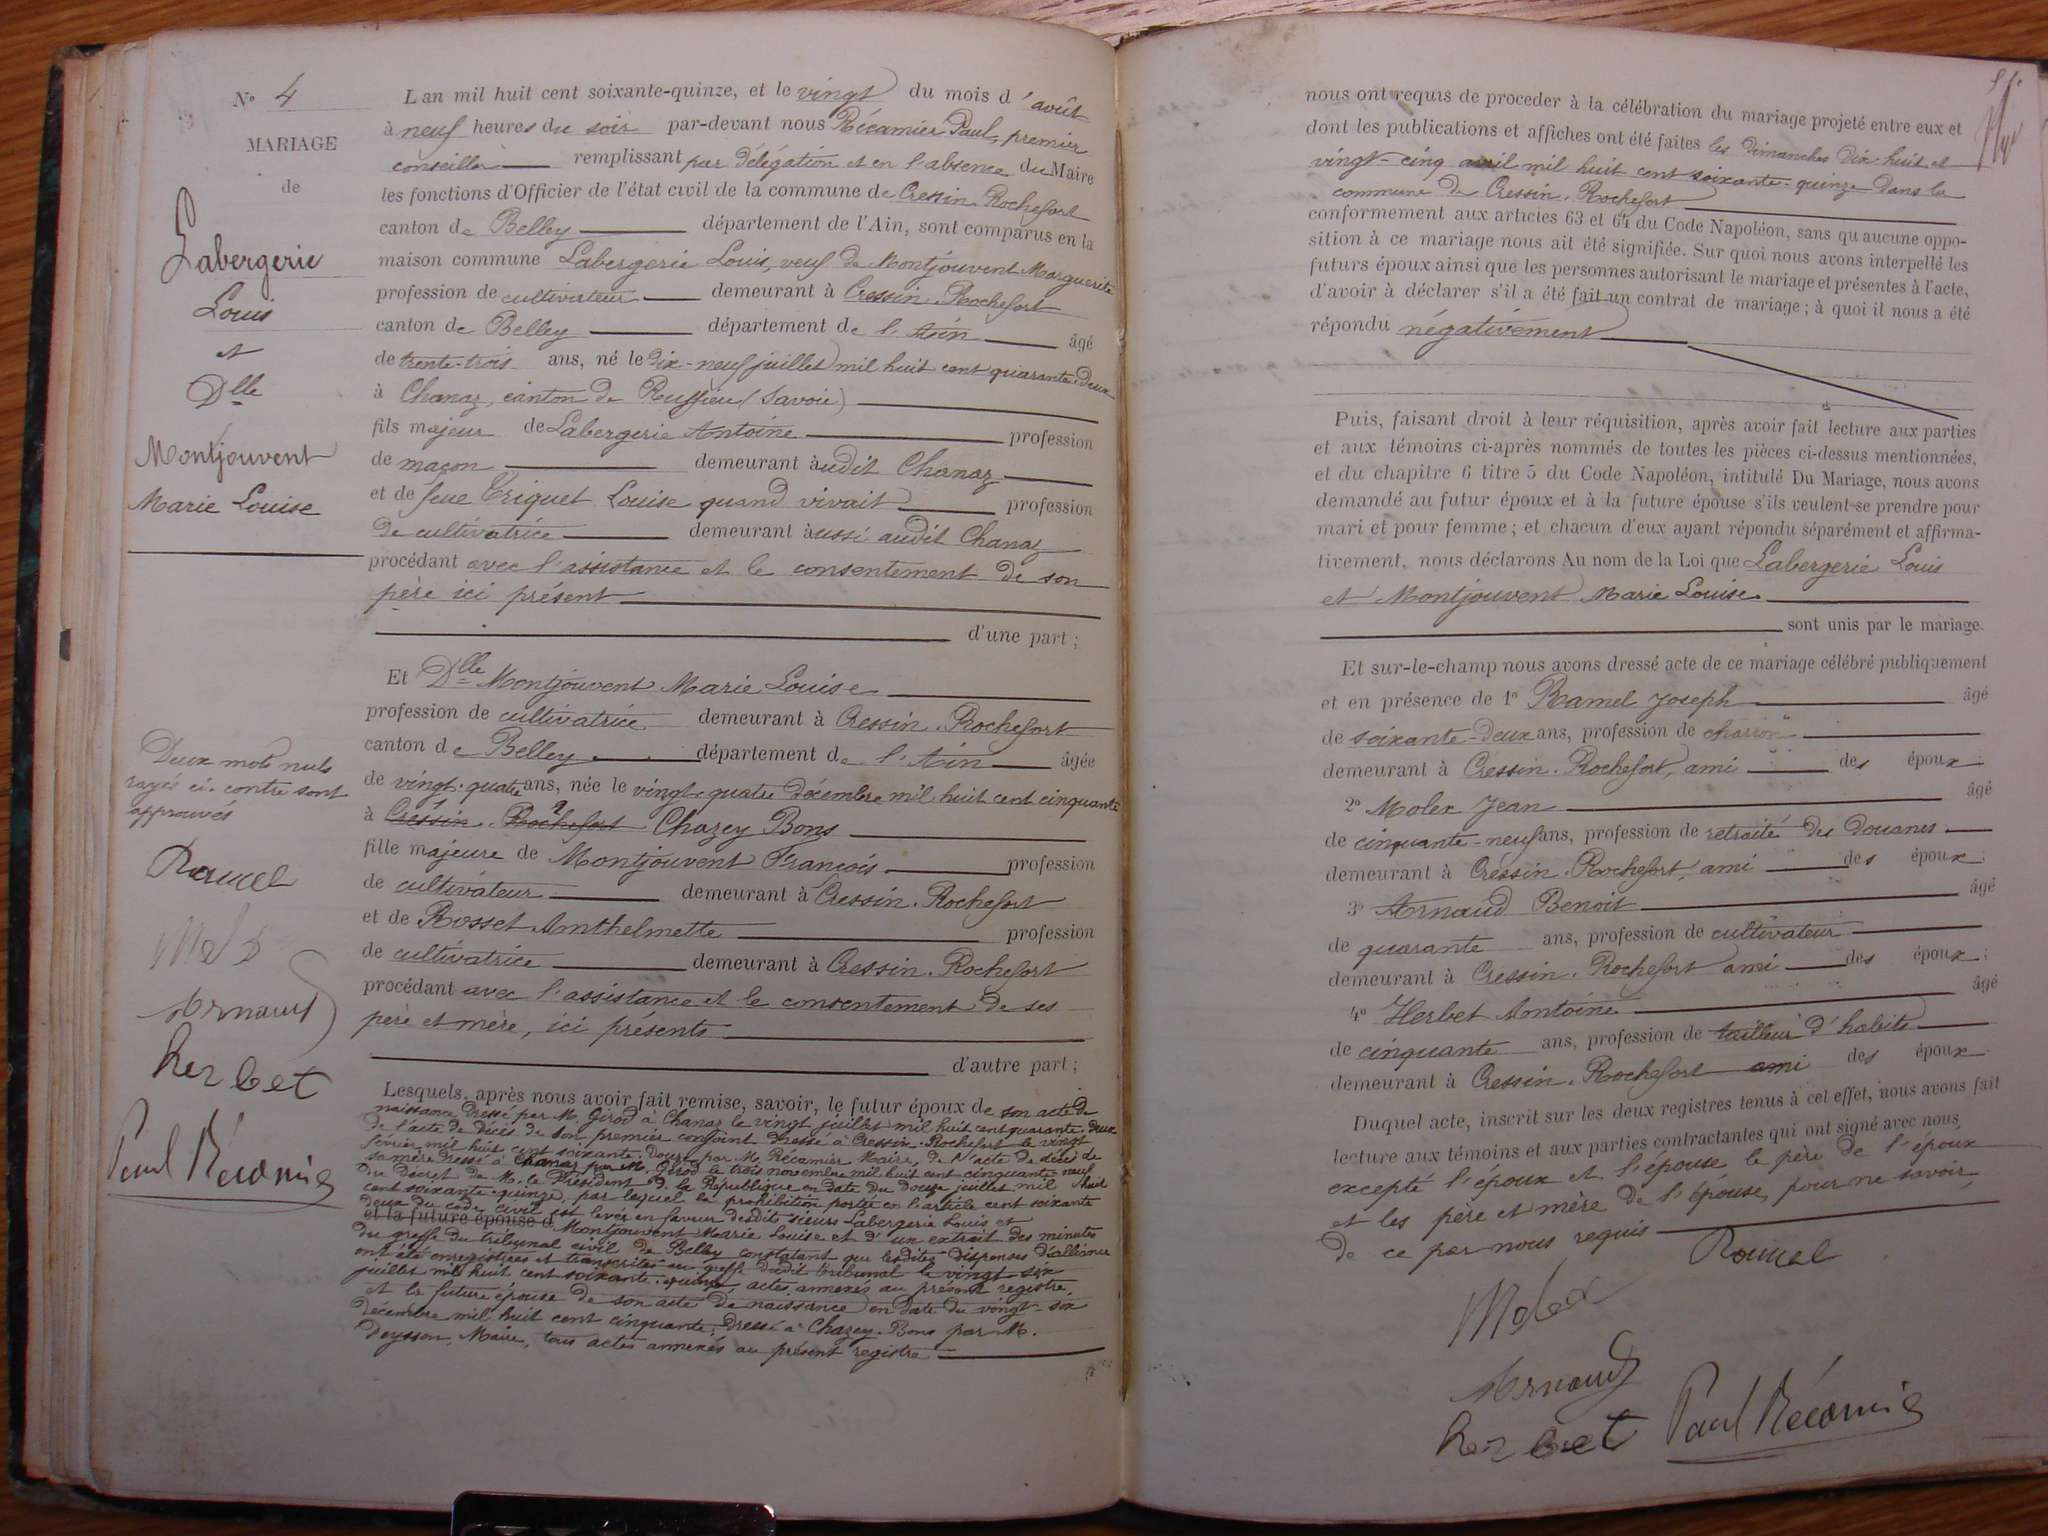 N° 4
MARIAGE
de
Labergerie
Louis
et
Dlle
Montjouvent
Marie Louise
Deux mots nuls
rayés ci-contre sont
approuvés
Ramel
Arnaud
herbet
Paul Récamier
L an mil huit cent soixante-quinze, et le vingt du mois d'août
à neuf heures du soir par-devant nous Récamier Paul, premier
conseiller remplissant par délégation et en l'absence du Maire
les fonctions d'Officier de l'état civil de la commune de Cressin-Rochefort
canton de Belley département de l'Ain, sont comparus en la
maison commune Labergerie Louis, veuf de Montjouvent Marguerite
profession de cultivateur demeurant à Cressin-Rochefort
canton de Belley département de l'Ain âgé
de trente-trois ans, né le dix-neuf juillet mil huit cent quarante-deux
à Chanaz, canton de Ruffieu (Savoie)
fils majeur de Labergerie Antoine profession
de maçon demeurant audit Chanaz
et de feue Triquet Louise quand vivait profession
de cultivatrice demeurant aussi audit Chanaz
procédant avec l'assistance et le consentement de son
père ici présent
d'une part ;
Et Dlle Montjouvent Marie Louise
profession de cultivatrice demeurant à Cressin-Rochefort
canton de Belley département de l'Ain âgée
de vingt-quatre ans, née le vingt-quatre décembre mil huit cent cinquante
à Cressin-Rochefort Chazey Bons
fille majeure de Montjouvent François profession
de cultivateur demeurant à Cressin-Rochefort
et de Rosset Anthelmette profession
de cultivatrice demeurant à Cressin-Rochefort
procédant avec l'assistance et le consentement de ses
père et mère, ici présents
d'autre part ;
Lesquels, après nous avoir fait remise, savoir, le futur époux de son acte de
naissance dressé par M. Girod à Chanaz le vingt juillet mil huit cent quarante-deux
de l'acte de décès de son premier conjoint dressé à Cressin-Rochefort le vingt
février mil huit cent soixante-douze par M. Récamier Maire, de l'acte de décès de
sa mère dressé à Chanaz par M. Girod le trois novembre mil huit cent cinquante-neuf
du décret de M. le Président de la République en date du douze juillet mil huit
cent soixante-quinze, par lequel la prohibition portée en l'article cent soixante
deux du code civil est levée en faveur desdits sieurs Labergerie Louis et
et la future épouse d Montjouvent Marie Louise et d'un extrait des minutes
du greffe du tribunal civil de Belley constatant que lesdites dispenses d'alliance
ont été enregistrées et transcrites au greffe dudit tribunal le vingt-six
juillet mil huit cent soixante-quinze, actes annexés au présent registre,
et la future épouse de son acte de naissance en date du vingt-six
décembre mil huit cent cinquante, dressé à Chazey-Bons par M.
Deysson, Maire, tous actes annexés au présent registre
nous ont requis de proceder à la célébration du mariage projeté entre eux et
dont les publications et affiches ont été faites les dimanches dix-huit et
vingt-cinq avril mil huit cent soixante-quinze dans la
commune de Cressin-Rochefort
conformement aux articles 63 et 64 du Code Napoléon, sans qu aucune oppo-
sition à ce mariage nous ait été signifiée. Sur quoi nous avons interpellé les
futurs époux ainsi que les personnes autorisant le mariage et présentes à l'acte,
d'avoir à déclarer s'il a été fait un contrat de mariage ; à quoi il nous a été
répondu négativement
Puis, faisant droit à leur réquisition, après avoir fait lecture aux parties
et aux témoins ci-après nommés de toutes les pièces ci-dessus mentionnées,
et du chapitre 6 titre 5 du Code Napoléon, intitulé Du Mariage, nous avons
demandé au futur époux et à la future épouse s'ils veulent se prendre pour
mari et pour femme ; et chacun d'eux ayant répondu séparément et affirma-
tivement, nous déclarons Au nom de la Loi que Labergerie Louis
et Montjouvent Marie Louise
sont unis par le mariage.
Et sur-le-champ nous avons dressé acte de ce mariage célébré publiquement
et en présence de 1° Ramel Joseph âgé
de soixante-deux ans, profession de charron
demeurant à Cressin-Rochefort, ami des époux
2° Moler Jean âgé
de cinquante-neuf ans, profession de retraité des douanes
demeurant à Cressin-Rochefort, ami des époux ;
3° Arnaud Benoit âgé
de quarante ans, profession de cultivateur
demeurant à Cressin-Rochefort ami des époux ;
4° Herbet Antoine âgé
de cinquante ans, profession de tailleur d'habits
demeurant à Cressin-Rochefort ami des époux
Duquel acte, inscrit sur les deux registres tenus à cet effet, nous avons fait
lecture aux témoins et aux parties contractantes qui ont signé avec nous,
excepté l'époux et l'épouse, le père de l'époux
et les père et mère de l'épouse, pour ne savoir,
de ce par nous requis
Ramel
Moler
Arnaud
herbet Paul Récamier